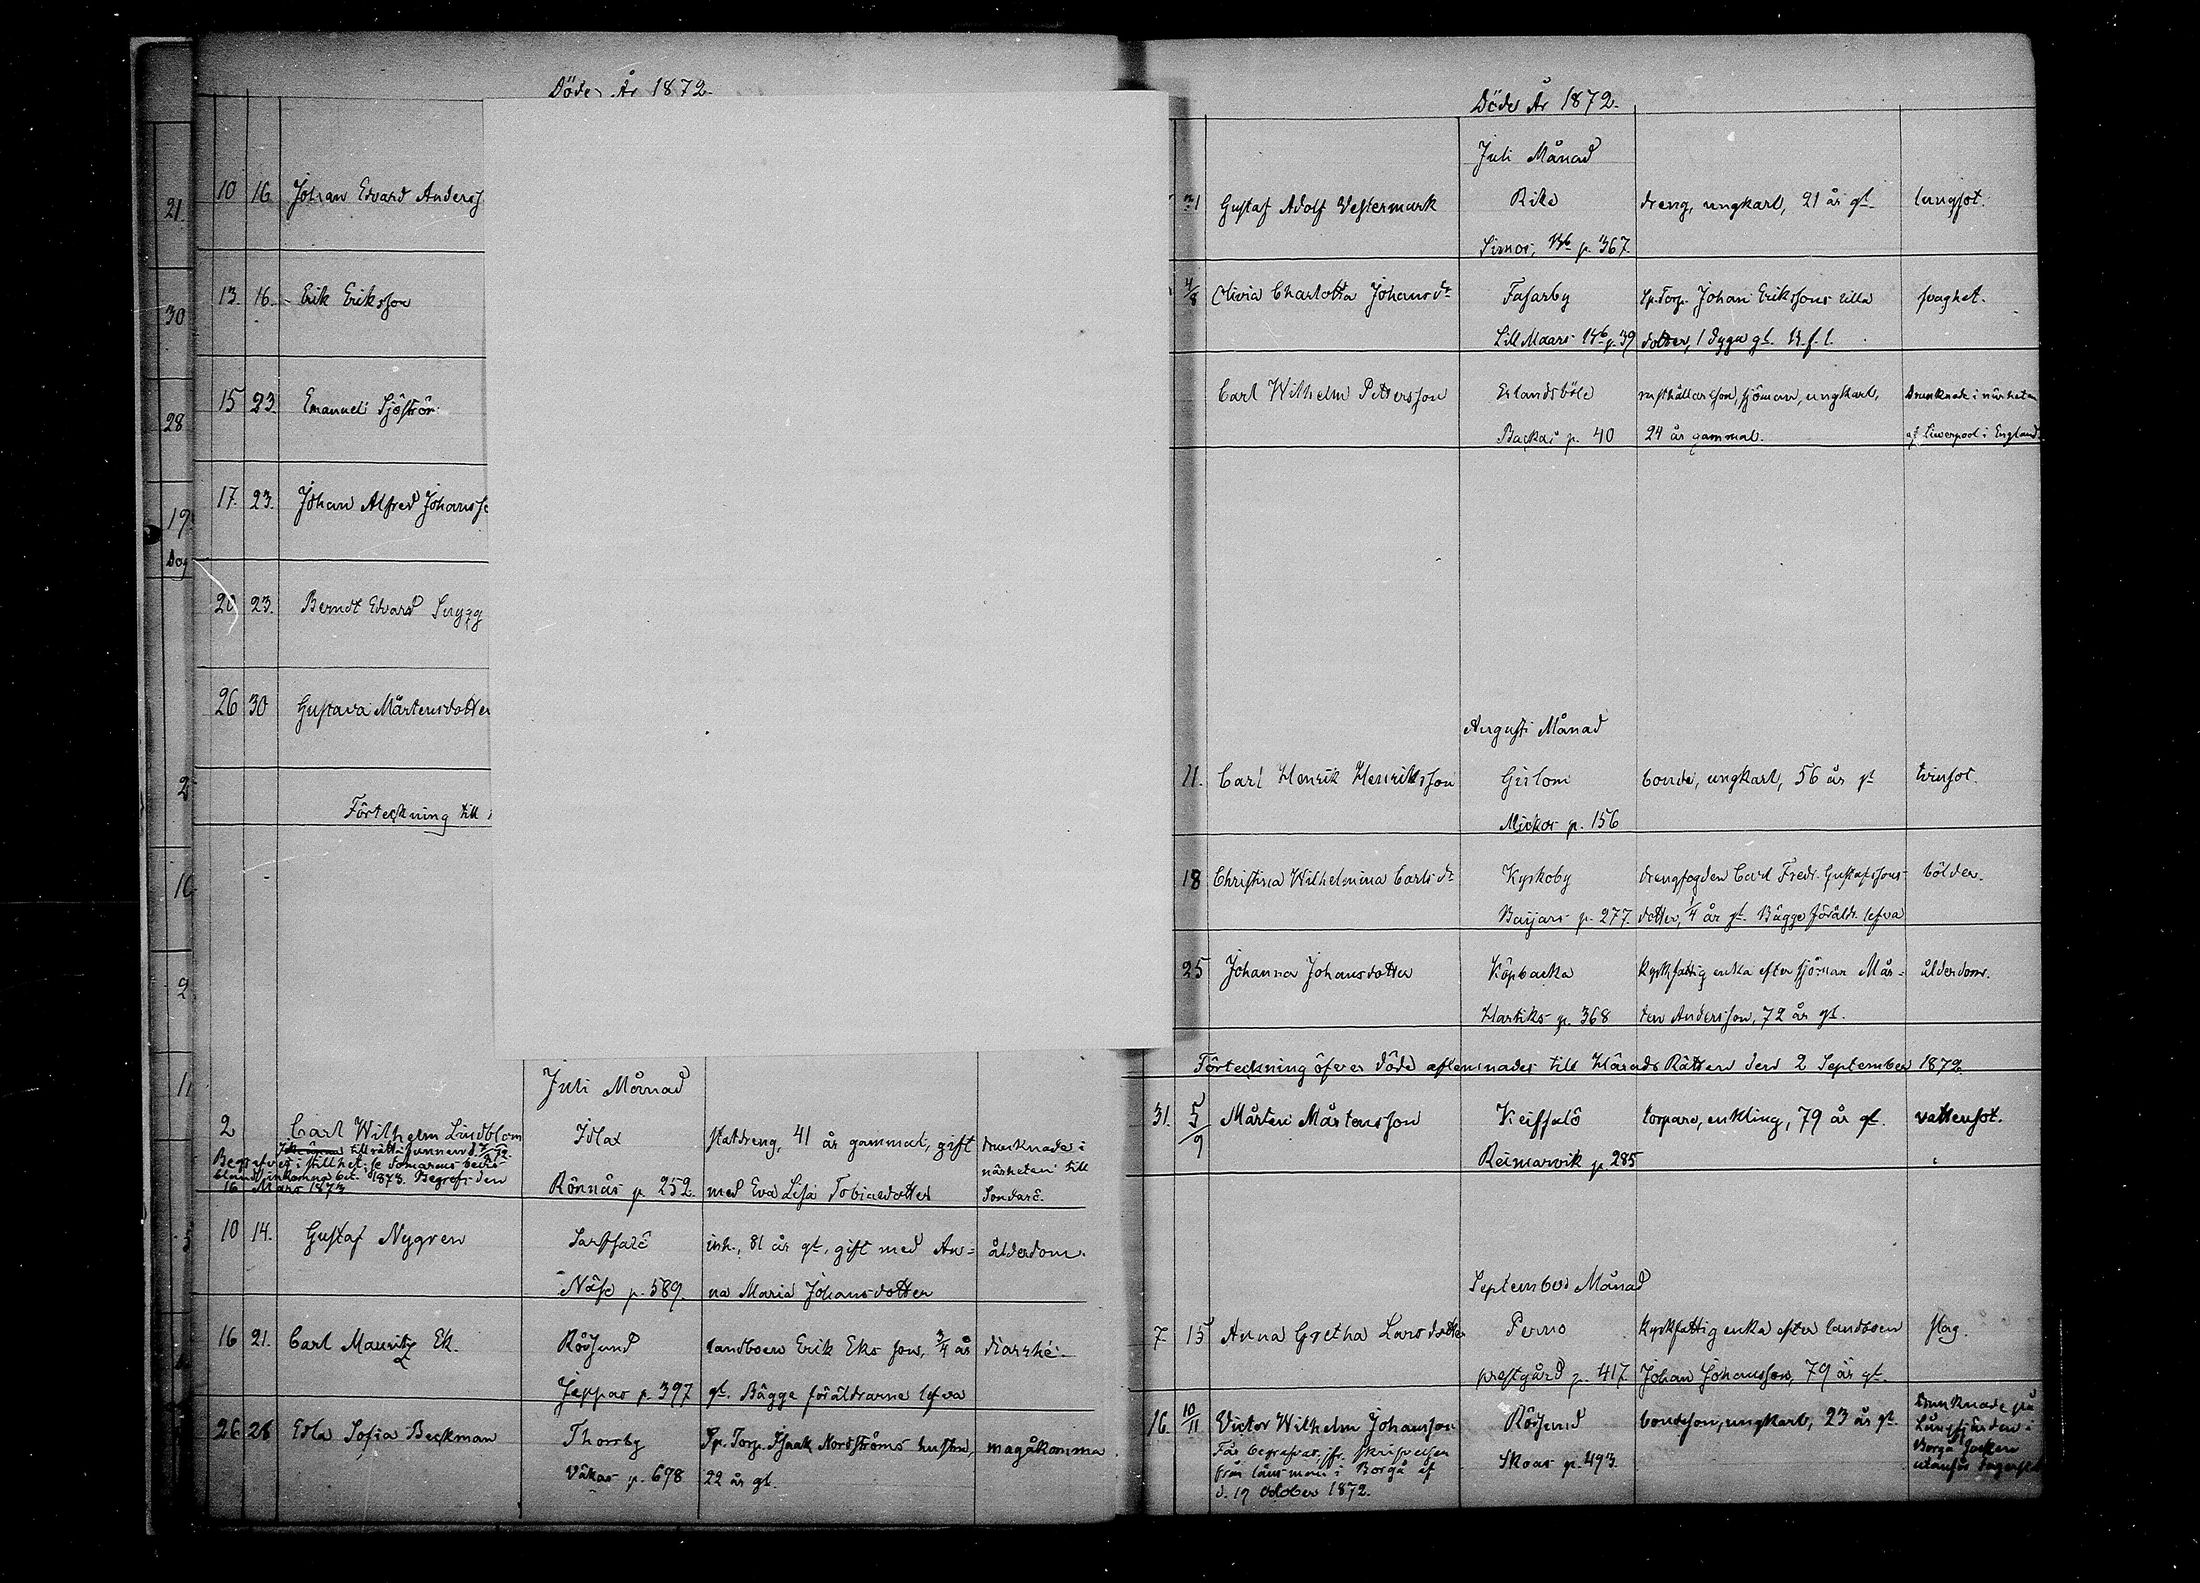 Döde År 1872.
21.
10 16 Johan Edvard Anderss
30
13. 16. Erik Eriksson
28
15 23. Emanuel Sjöström
17. 23. Johan Alfred Johansso
19.
Dog
20 23. Berndt Edvard Snygg
26 30 Gustava Mårtensdotter
Förteckning till
Juli Månad
2 Carl Wilhelm Lindblom Idlax statdreng, 41 år gammal, gift drunknade i
närheten till
Begrafves i stillhet
inkomna bet. 1873. Begrofs den
16 Mars 1873
Rönnäs p. 252. med Eva Lisa Tobiasdotter Sondarö.
10 14. Gustaf Nygren Sarfsalö inh., 81 år gl., gift med An= ålderdom.
Näse p. 589. na Maria Johansdotter
16 21. Carl Mauritz Ek. Rödsund landboen Erik Eks son, 3/4 år diarrhé.
Jeppas p. 397 gl. Bägge föräldrarne lefva
26 28 Edla Sofia Beckman Thorsby Sp. Torp. Isaak Nordströms hustru, magåkomma.
Våkas p. 698 22 år gl.
Döde År 1872.
Juli Månad
31 Gustaf Adolf Vestermark Rike dreng, ungkarl, 21 år gl. lungsot.
Simos, p. 367.
4/8 Olivia Charlotta Johansdr Fasarby Sp. Torp. Johan Erikssons lilla svaghet.
Lill Maars p. 39 dotter, 1 dygn gl. B. f. l.
Carl Wilhelm Pettersson Erlandsböle rusthållareson, sjöman, ungkarl, Drunknade i närheten
Backas p. 40 24 år gammal. af Liverpool i England.
Augusti Månad
11. Carl Henrik Henriksson Gislom bonde, ungkarl, 56 år gl tvinsot.
Mickos p. 156
18 Christina Wilhelmina Carlsdr Kyrkoby drengfogden Carl Fredr. Gustafssons bölder.
Baijars p. 277. dotter, 1/4 år gl. Bägge föräldr. lefva
25 Johanna Johansdotter Köpbacka kyrkfattig enka efter sjöman Mår= ålderdom.
Hartiks p. 368 ten Andersson, 72 år gl.
Förteckning öfver döde aflemnades till Härads Rätten den 2 September 1872.
31. 5/9 Mårten Mårtensson Keitsalö torpare, enkling, 79 år gl. vattensot.
Reimarvik p. 285
September Månad
7. 15 Anna Gretha Larsdotter Perno kyrkfattig enka efter landboen slag.
prestgård p. 417 Johan Johansson, 79 år gl.
16. 10/11 Victor Wilhelm Johansson Rödsund bondeson, ungkarl, 23 år gl. Drunknade på
Får begrafvas, jfr. skrifvelsen Skoas p. 493.
från länsman i Borgå af
d. 19 October 1872.
Borgå Socken
utanför